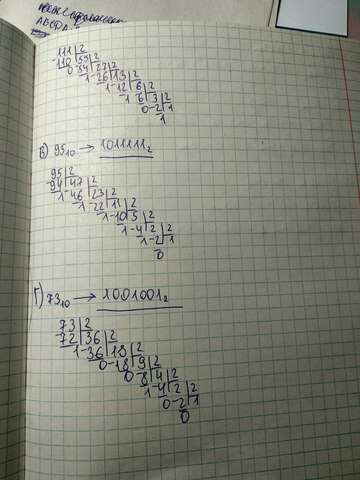 ABCDA
111|2
110 55|2
0 54 27|2
1 26 13|2
1 12 6|2
1 6 3|2
0 2 1
1
в) 95₁₀ → 1011111₂
95|2
94 47|2
1 46 23|2
1 22 11|2
1 10 5|2
1 4 2|2
1 2 1
0
г) 73₁₀ → 1001001₂
73|2
72 36|2
1 36 18|2
0 18 9|2
0 8 4|2
1 4 2|2
0 2 1
0